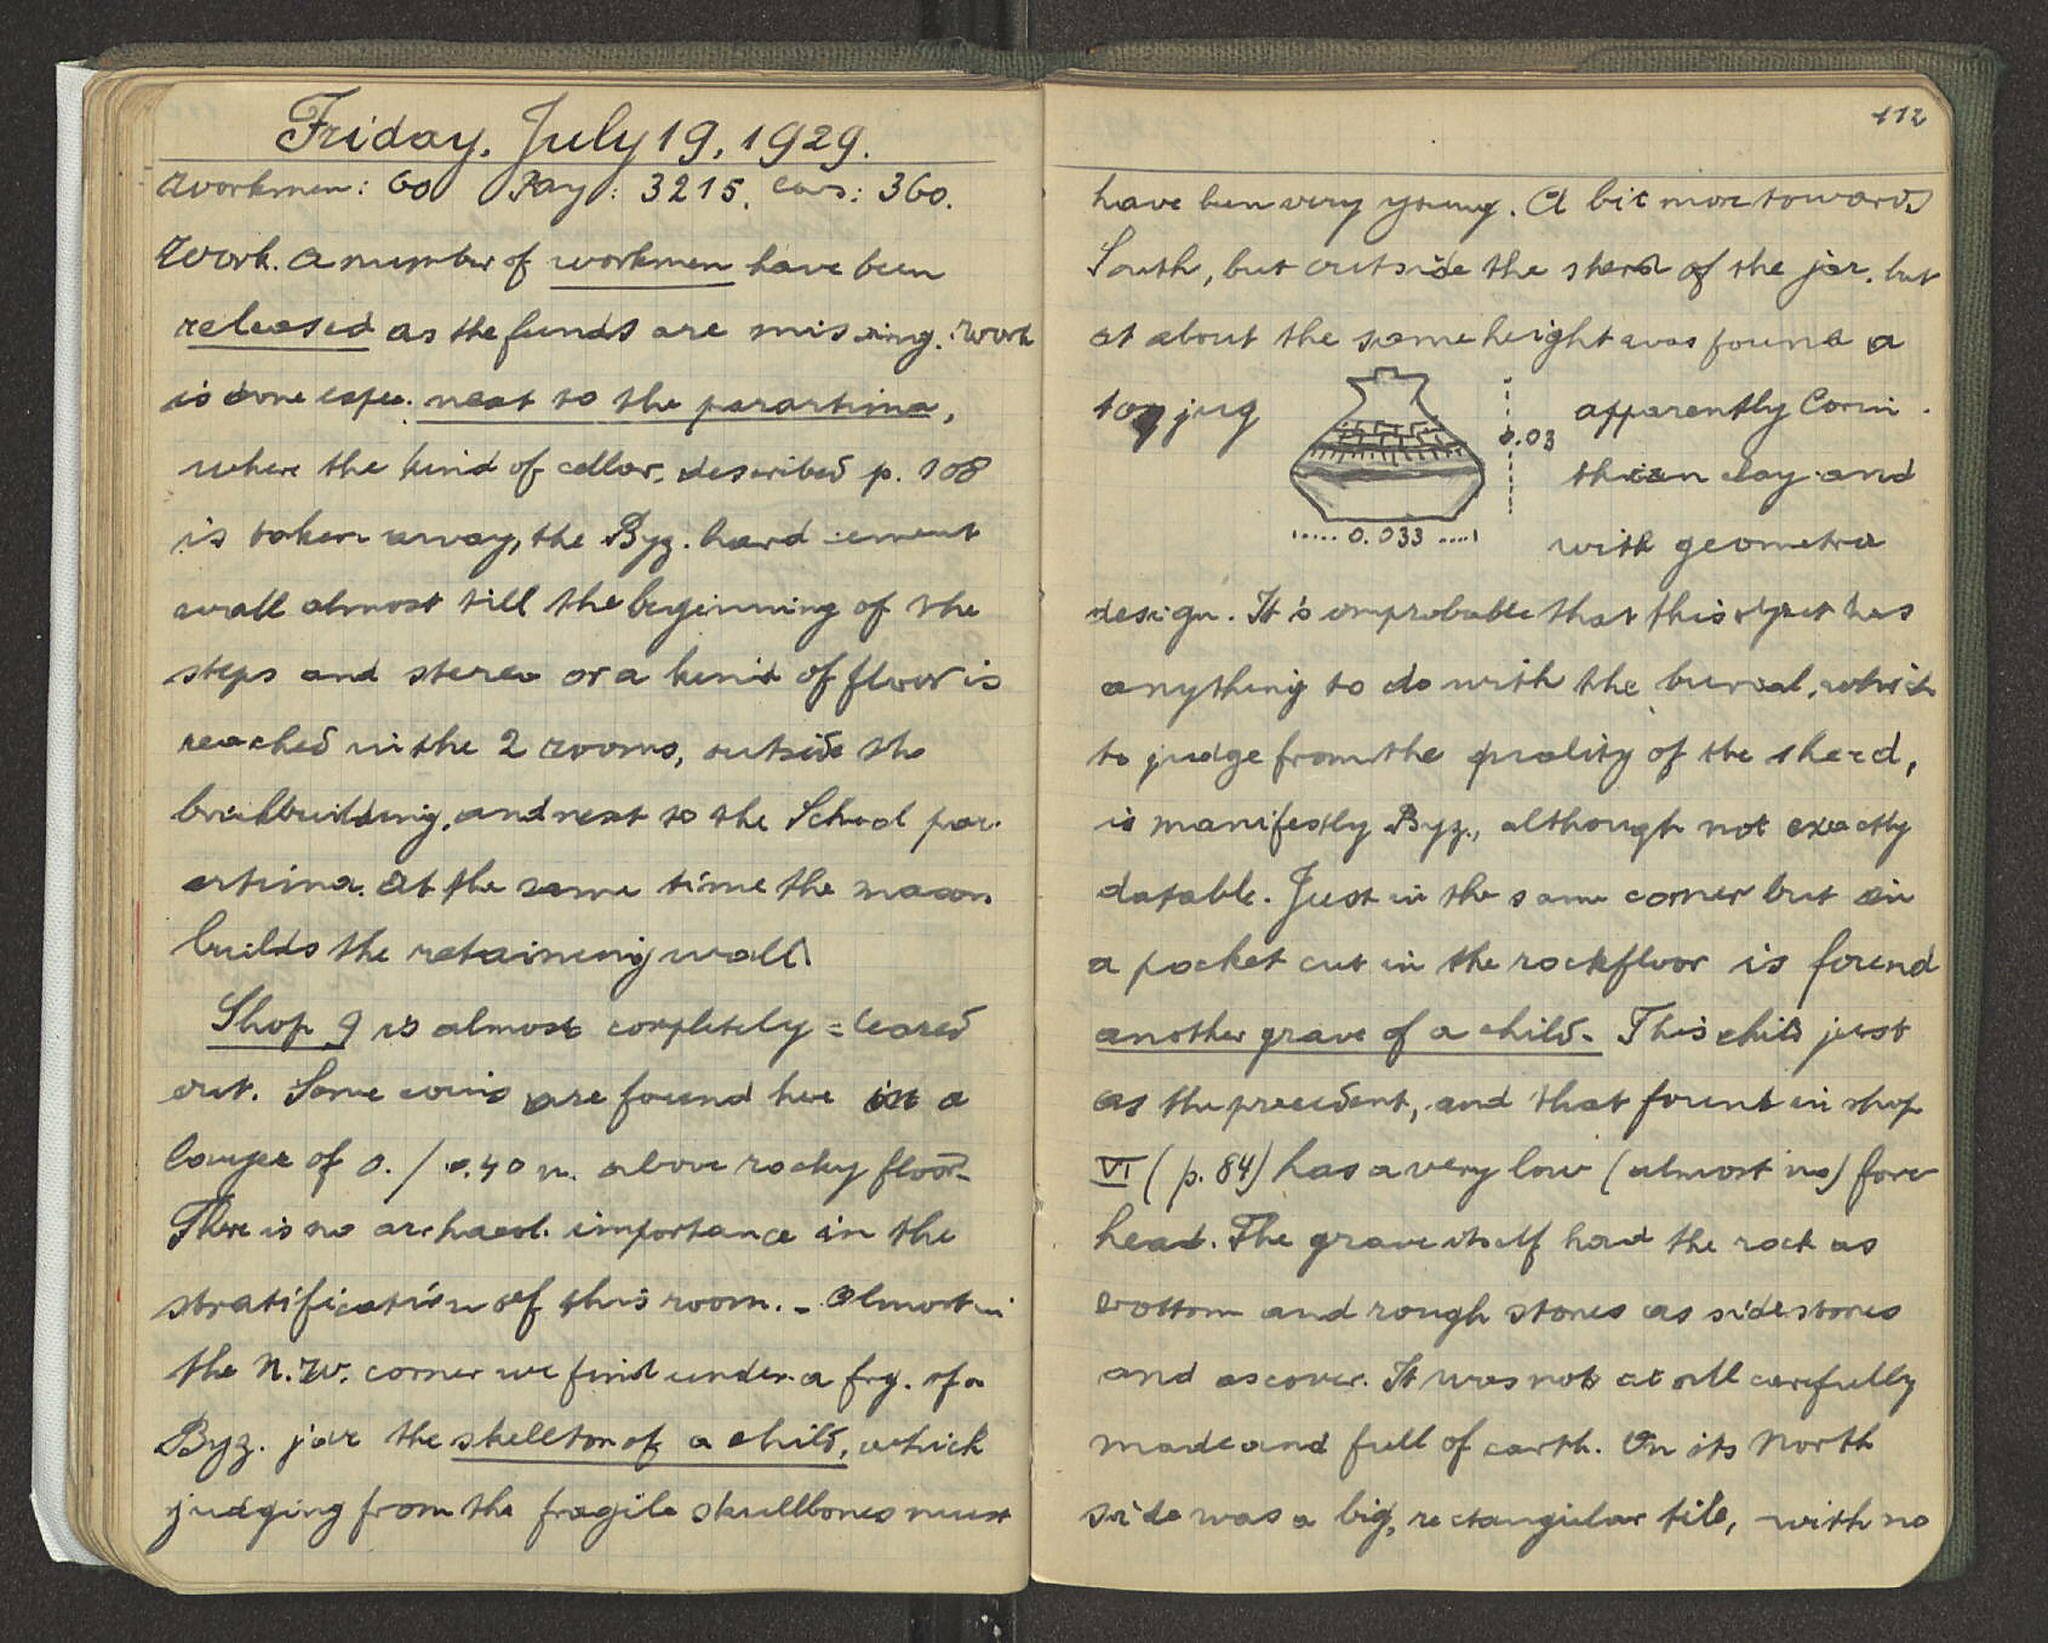 Friday, July 19, 1929.
Workmen: 60 Pay: 3215. Cars: 360.
Work. A number of workmen have been
released as the funds are missing. Work
is done espec. next to the parartima,
where the kind of cellar, described p. 108
is taken away, the Byz. hard cement
wall almost till the beginning of the
steps and stereo or a kind of floor is
reached in the 2 rooms, outside the
brickbuilding, and next to the School par-
artima. At the same time the mason
builds the retaining wall.
Shop 9 is almost completely cleared
out. Some coins are found here in a
layer of 0./0.40 m. above rocky floor.
There is no archaeol. importance in the
stratification of this room. - Almost in
the N.W. corner we find under a frg. of a
Byz. jar the skelleton of a child, which
judging from the fragile skullbones must
112
have been very young. A bit more towards
South, but outside the sherd of the jar, but
at about the same height was found a
toy jug
0.03
0.033
apparently Corin-
thian clay and
with geometric
design. It is improbable that this object has
anything to do with the burial, which
to judge from the quality of the sherd,
is manifestly Byz., although not exactly
datable. Just in the same corner but in
a pocket cut in the rockfloor is found
another grave of a child. This child just
as the precedent, and that found in shop
VI (p. 84) has a very low (almost no) fore
head. The grave itself had the rock as
bottom and rough stones as sidestones
and as cover. It was not at all carefully
made and full of earth. On its North
side was a big, rectangular tile, with no